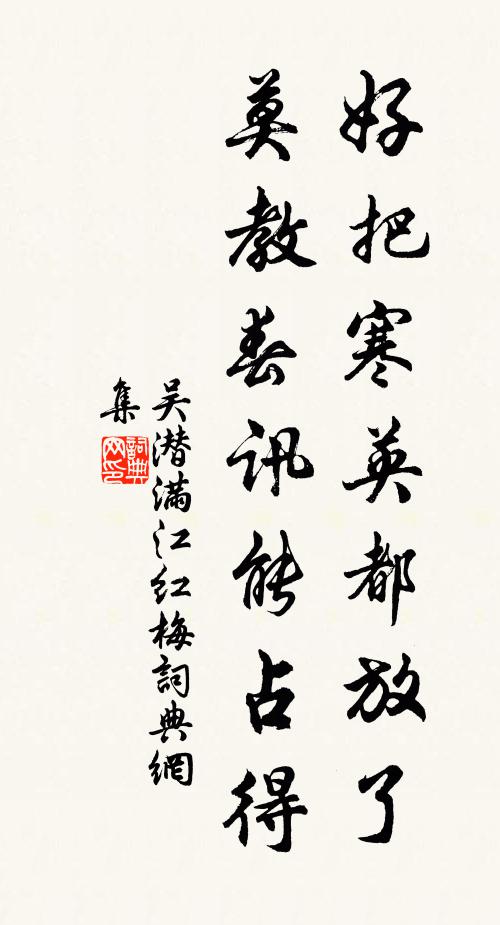 好把寒英都放了
莫教春訊能占得
吴潜满江红梅詞典網
集
詞典网印